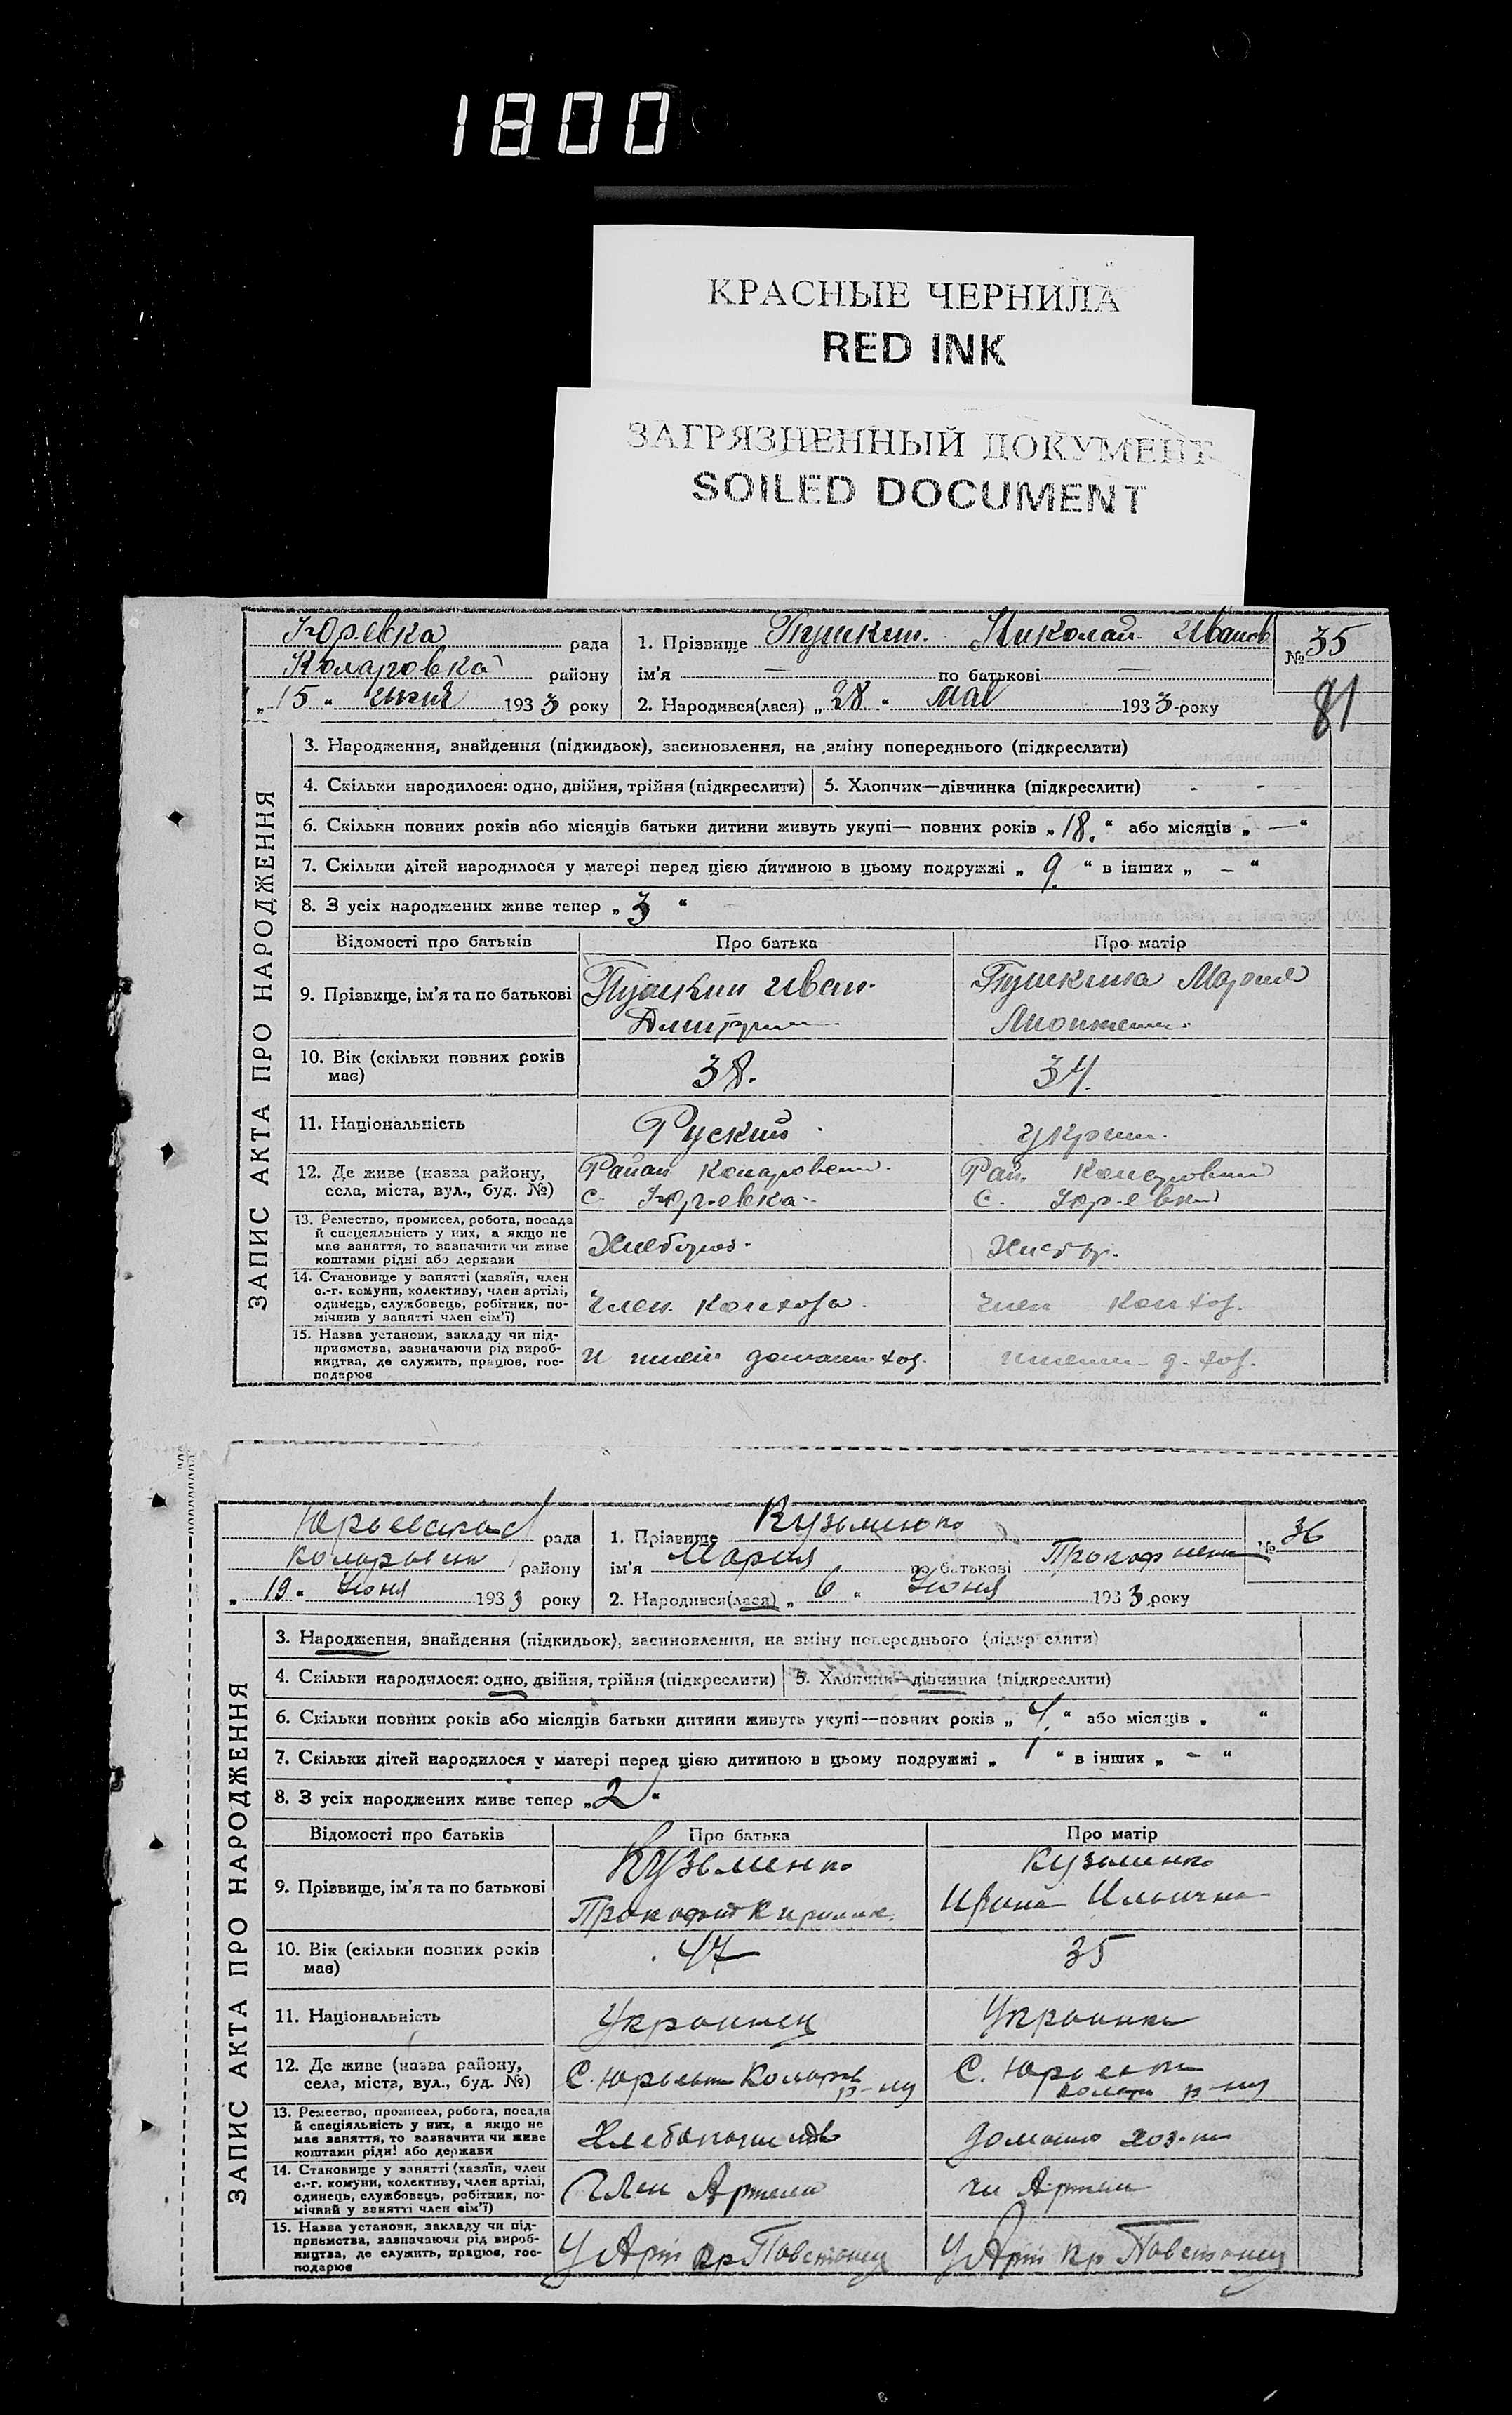 1800
КРАСНЫЕ ЧЕРНИЛА
RED INK
ЗАГРЯЗНЕННЫЙ ДОКУМЕНТ
SOILED DOCUMENT
Юр.евка рада
Коларовка району
„15“ июня 1933 року
1. Прізвище Пушкин. Николай Иванов
ім'я — по батькові —
2. Народився(лася) „28“ мая 1933 року
№ 35
81
ЗАПИС АКТА ПРО НАРОДЖЕННЯ
3. Народження, знайдення (підкидьок), засиновлення, на зміну попереднього (підкреслити)
4. Скільки народилося: одно, двійня, трійня (підкреслити) 5. Хлопчик—дівчинка (підкреслити)
6. Скільки повних років або місяців батьки дитини живуть укупі— повних років „18.“ або місяців „—“
7. Скільки дітей народилося у матері перед цією дитиною в цьому подружжі „9.“ в інших „–“
8. З усіх народжених живе тепер „3“
Відомості про батьків Про батька Про матір
9. Прізвище, ім'я та по батькові Пушкин Иван. Пушкина Мария
10. Вік (скільки повних років має) 38. 34.
11. Національність Руский укрошн.
12. Де живе (назва району, села, міста, вул., буд. №)
с. Юр.евка с. Юр.евка
13. Ремество, промисел, робота, посада
й спецеяльність у них, а якщо не
має заняття, то зазначити чи живе
коштами рідні або держави
Хлебороб. Хлебор.
14. Становище у занятті (хазяїн, член
с.-г. комуни, колективу, член артілі,
одинець, службовець, робітник, по-
мічник у занятті член сім'ї)
член колхоза. член колхоз.
15. Назва установи, закладу чи під-
приємства, зазначаючи рід вироб-
ництва, де служить, працює, гос-
подарює
домашн хоз. д. хоз.
рада
району
„19“ Июня 1933 року
1. Прізвище Кузьменко
ім'я Мария по батькові Прокофиевна
2. Народився(лася) „6“ Июня 1933 року
№ 36
ЗАПИС АКТА ПРО НАРОДЖЕННЯ
3. Народження, знайдення (підкидьок), засиновлення, на зміну попереднього (підкреслити)
4. Скільки народилося: одно, двійня, трійня (підкреслити) 5. Хлопчик—дівчинка (підкреслити)
6. Скільки повних років або місяців батьки дитини живуть укупі—повних років „4.“ або місяців „ “
7. Скільки дітей народилося у матері перед цією дитиною в цьому подружжі „1“ в інших „–“
8. З усіх народжених живе тепер „2“
Відомості про батьків Про батька Про матір
Кузьменко Кузьменко
9. Прізвище, ім'я та по батькові
Ильична
10. Вік (скільки повних років має) 47 35
11. Національність Украинец Украинка
12. Де живе (назва району, села, міста, вул., буд. №)
р-ну р-ну
13. Ремество, промисел, робота, посада
й спеціяльність у них, а якщо не
має заняття, то зазначити чи живе
коштами рідні або держави
14. Становище у занятті (хазяїн, член
с.-г. комуни, колективу, член артілі,
одинець, службовець, робітник, по-
мічний у занятті член сім'ї)
Член Артели чл Артели
15. Назва установи, закладу чи під-
приємства, зазначаючи рід вироб-
ництва, де служить, працює, гос-
подарює
У Арт Кр Повстанец У Арт Кр Повстанец